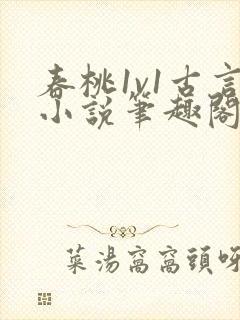 春桃1v1古言
小說筆趣閣
菜湯窩窩頭呀